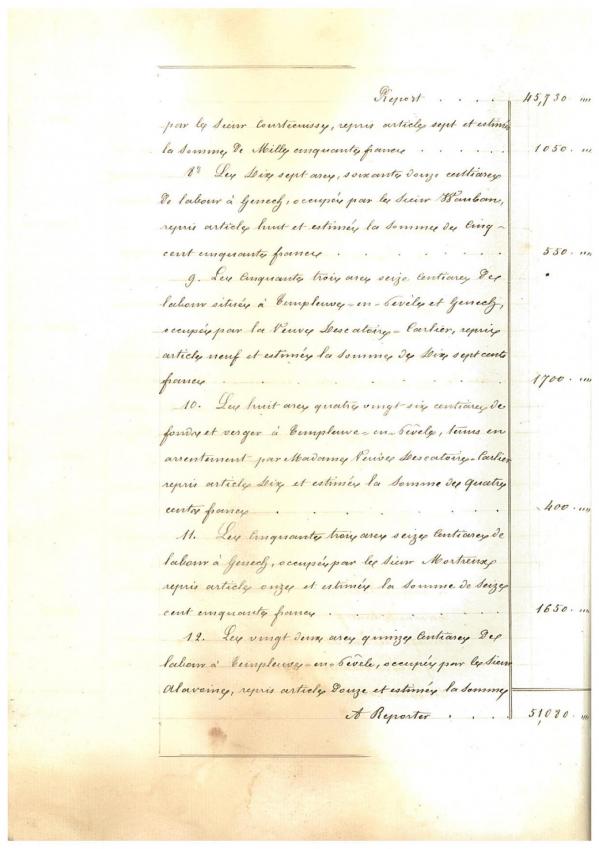 Report . . . . 45,730 . "
par le sieur Courtecuisse, repris article sept et estimés
la somme de Mille cinquante francs . . . . 1050 . "
8° Les Dix sept ares, soixante douze centiares
de labour à Genech, occupés par le sieur Vauban,
repris article huit et estimés la somme de Cinq-
cent cinquante francs . . . . . 550 . "
9. Les Cinquante trois ares seize centiares De
labour situés à Templeuve-en-Pévèle et Genech,
occupés par la Veuve Descatoire-Carlier, repris
article neuf et estimés la somme de Dix sept cents
francs . . . . . 1700 . "
10. Les huit ares quatre vingt six centiares de
fonds et verger à Templeuve-en-Pévèle, tenus en
arrentement par Madame Veuve Descatoire-Carlier
repris article Dix et estimés la somme de Quatre
cents francs . . . . . 400 . "
11. Les Cinquante trois ares seize Centiares de
labour à Genech, occupés par le sieur Mortreux
repris article onze et estimés la somme de Seize
cent cinquante francs . . . . . 1650 . "
12. Les vingt deux ares quinze Centiares De
labour à Templeuve-en-Pévèle, occupés par le sieur
Alavoine, repris article Douze et estimés la somme
A Reporter . . . 51,080 . "